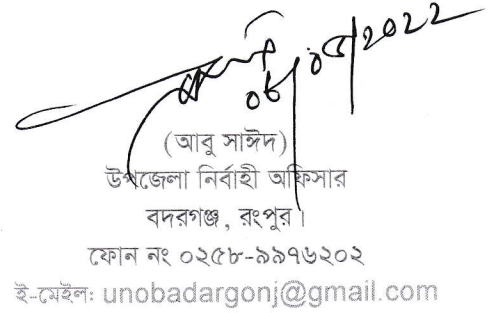 ০৮/০৫/2022
(আবু সাঈদ)
উপজেলা নির্বাহী অফিসার
বদরগঞ্জ, রংপুর।
ফোন নং ০২৫৮-৯৯৭৬২০২
ই-মেইলঃ unobadargonj@gmail.com